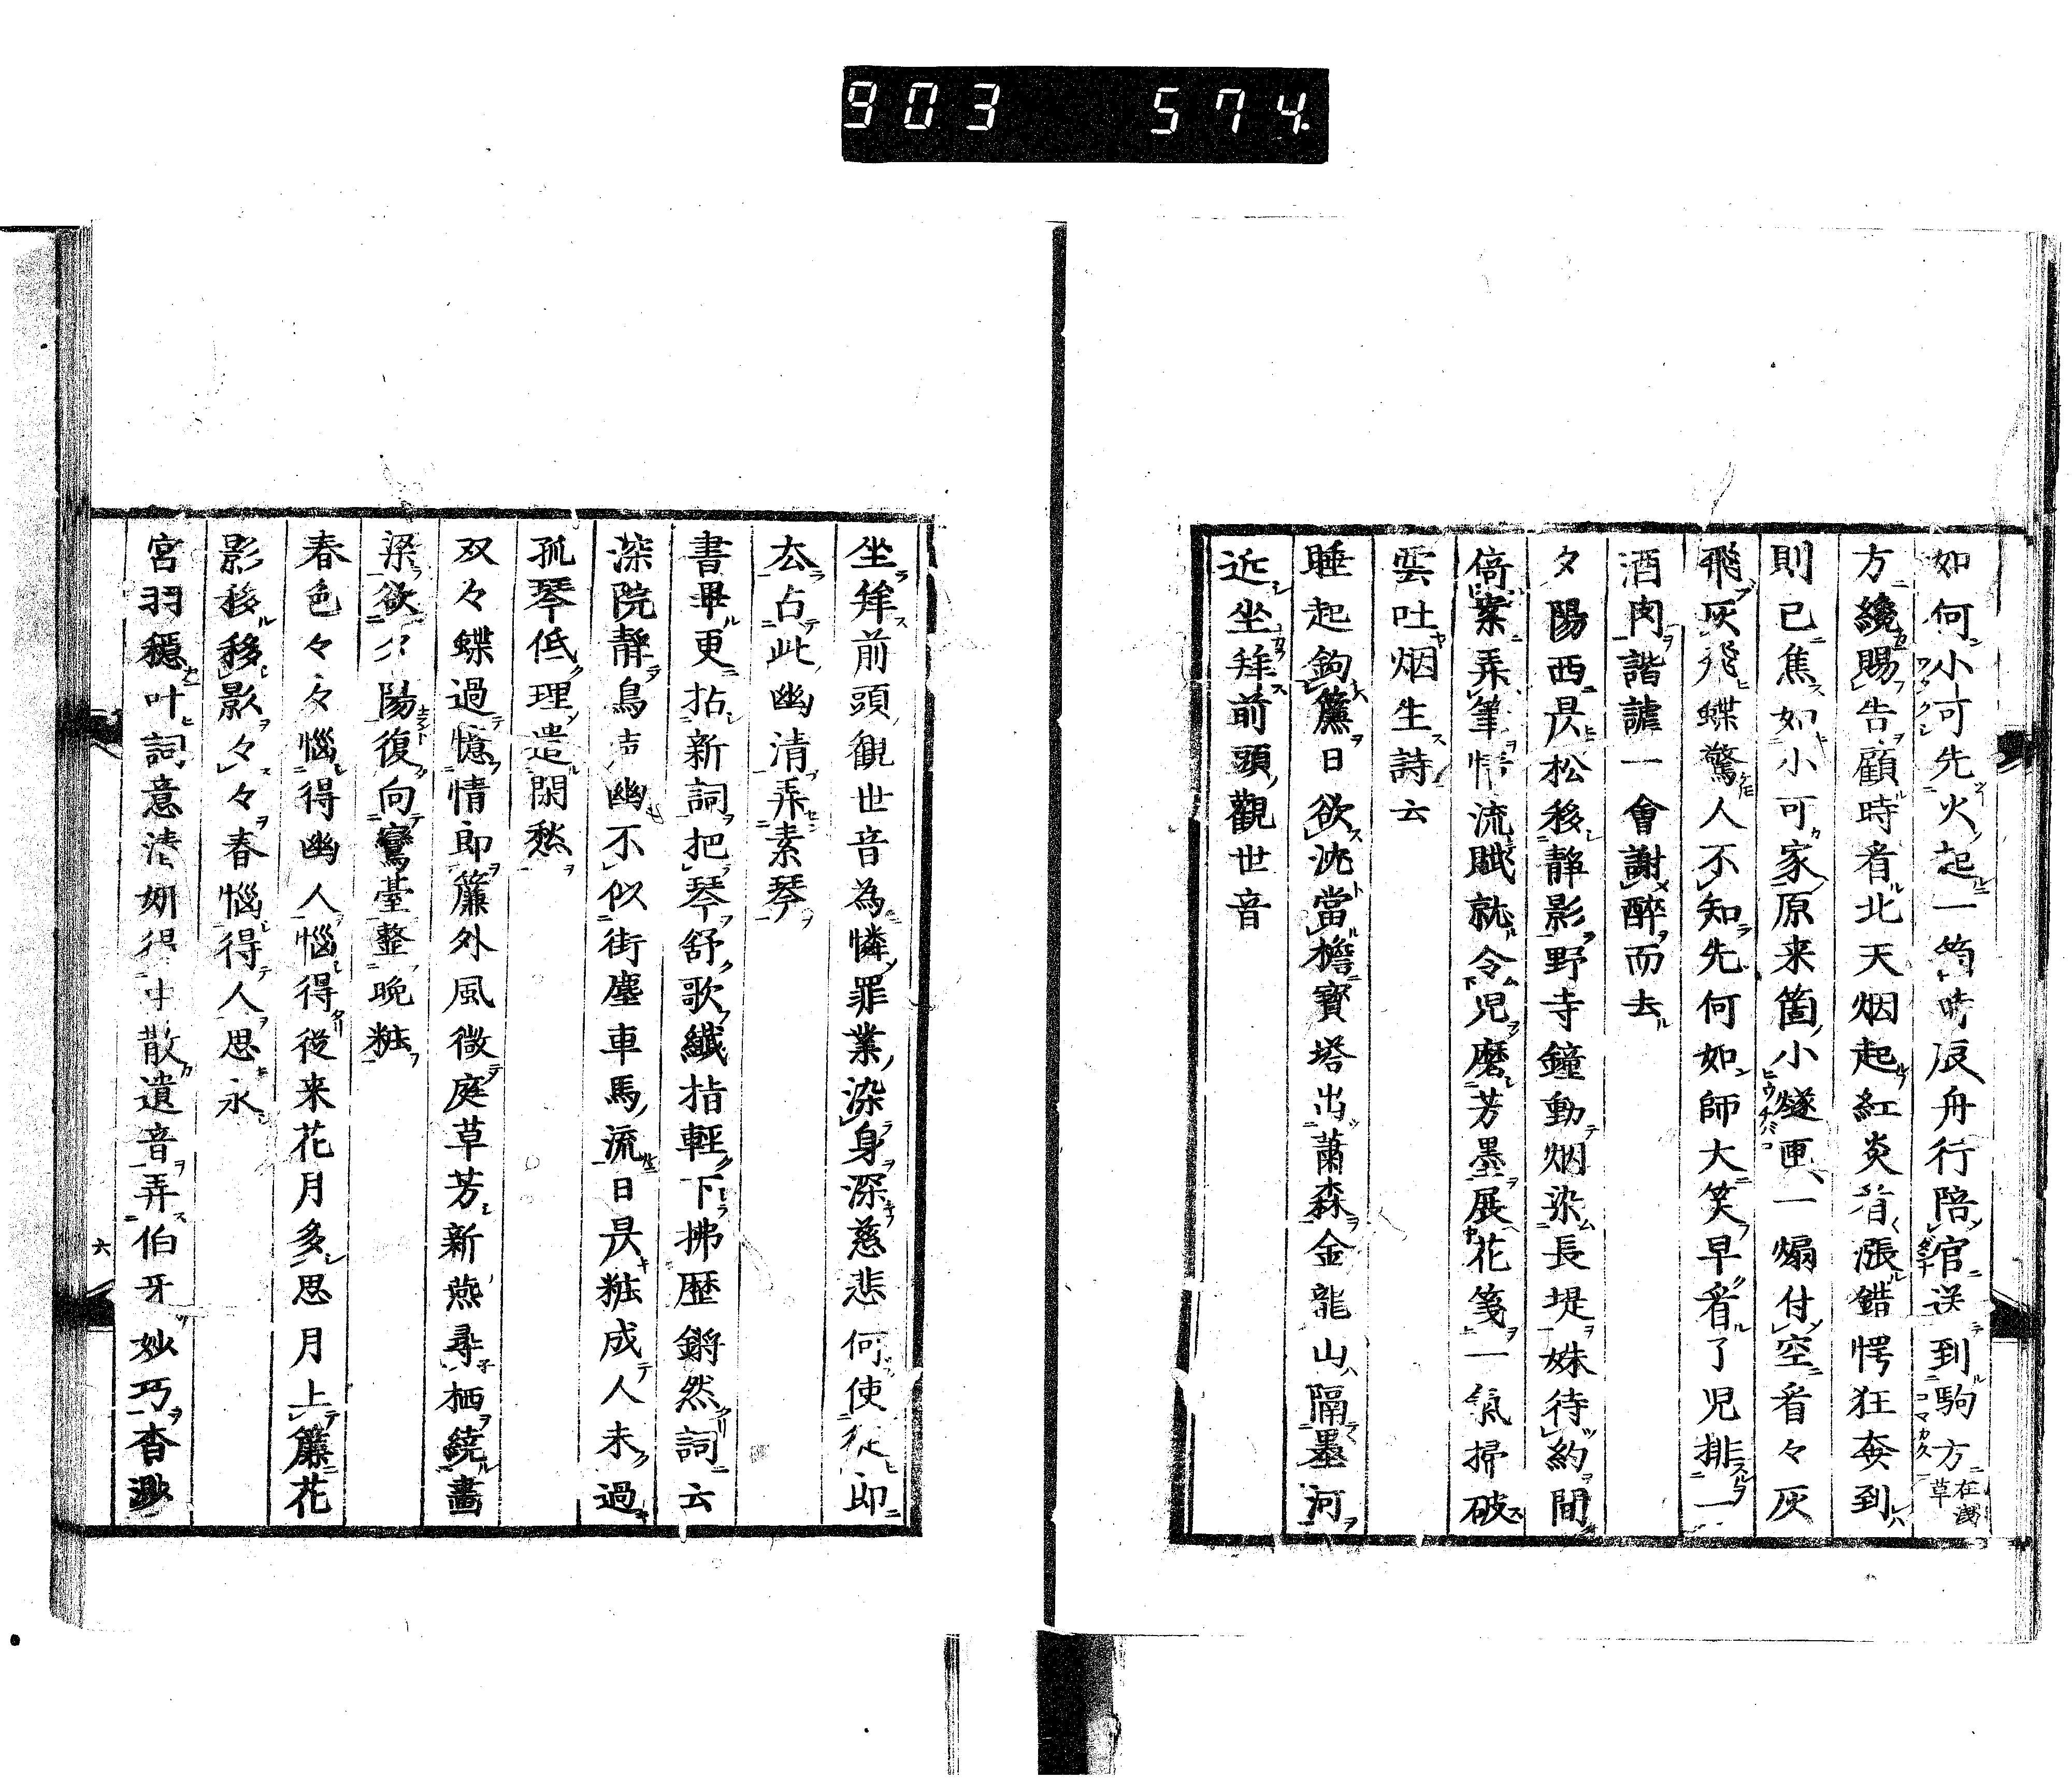 903 574
如何小可先火起一筒時辰舟行陪官送到駒方在淺草
方纔賜告顧時看北天烟起紅炎着漲錯愕狂奔到
則已焦如小可家原来箇小燧匣一煽付空看々灰
飛灰飛蝶驚人不知先何如師大笑早看了児排一
酒肉諧謔一會謝醉而去
夕陽西昃松移靜影野寺鐘動烟染長堤姝待約間
倚案弄筆情流賦就令児磨芳墨展花箋一氣掃破
雲吐烟生詩云
睡起鉤簾日欲沈當檐寳塔出蕭森金龍山隔墨河
近坐拜前頭觀世音
坐拜前頭観世音為憐罪業染身深慈悲何使従郎
去占此幽清弄素琴
書畢更拈新詞把琴舒歌纎指軽下拂歴鏘然詞云
深院静鳥声幽不似街塵車馬流日昃粧成人未過
孤琴低理遣閑愁
双々蝶過憶情郎簾外風微庭草芳新燕尋栖繞畵
梁欲夕陽復向鸞臺整晩粧
春色々々惱得幽人惱得従来花月多思月上簾花
影移移影々々春惱得人思永
宮羽穏叶詞意淒妍得中散遺音弄伯牙妙巧杳渺
六